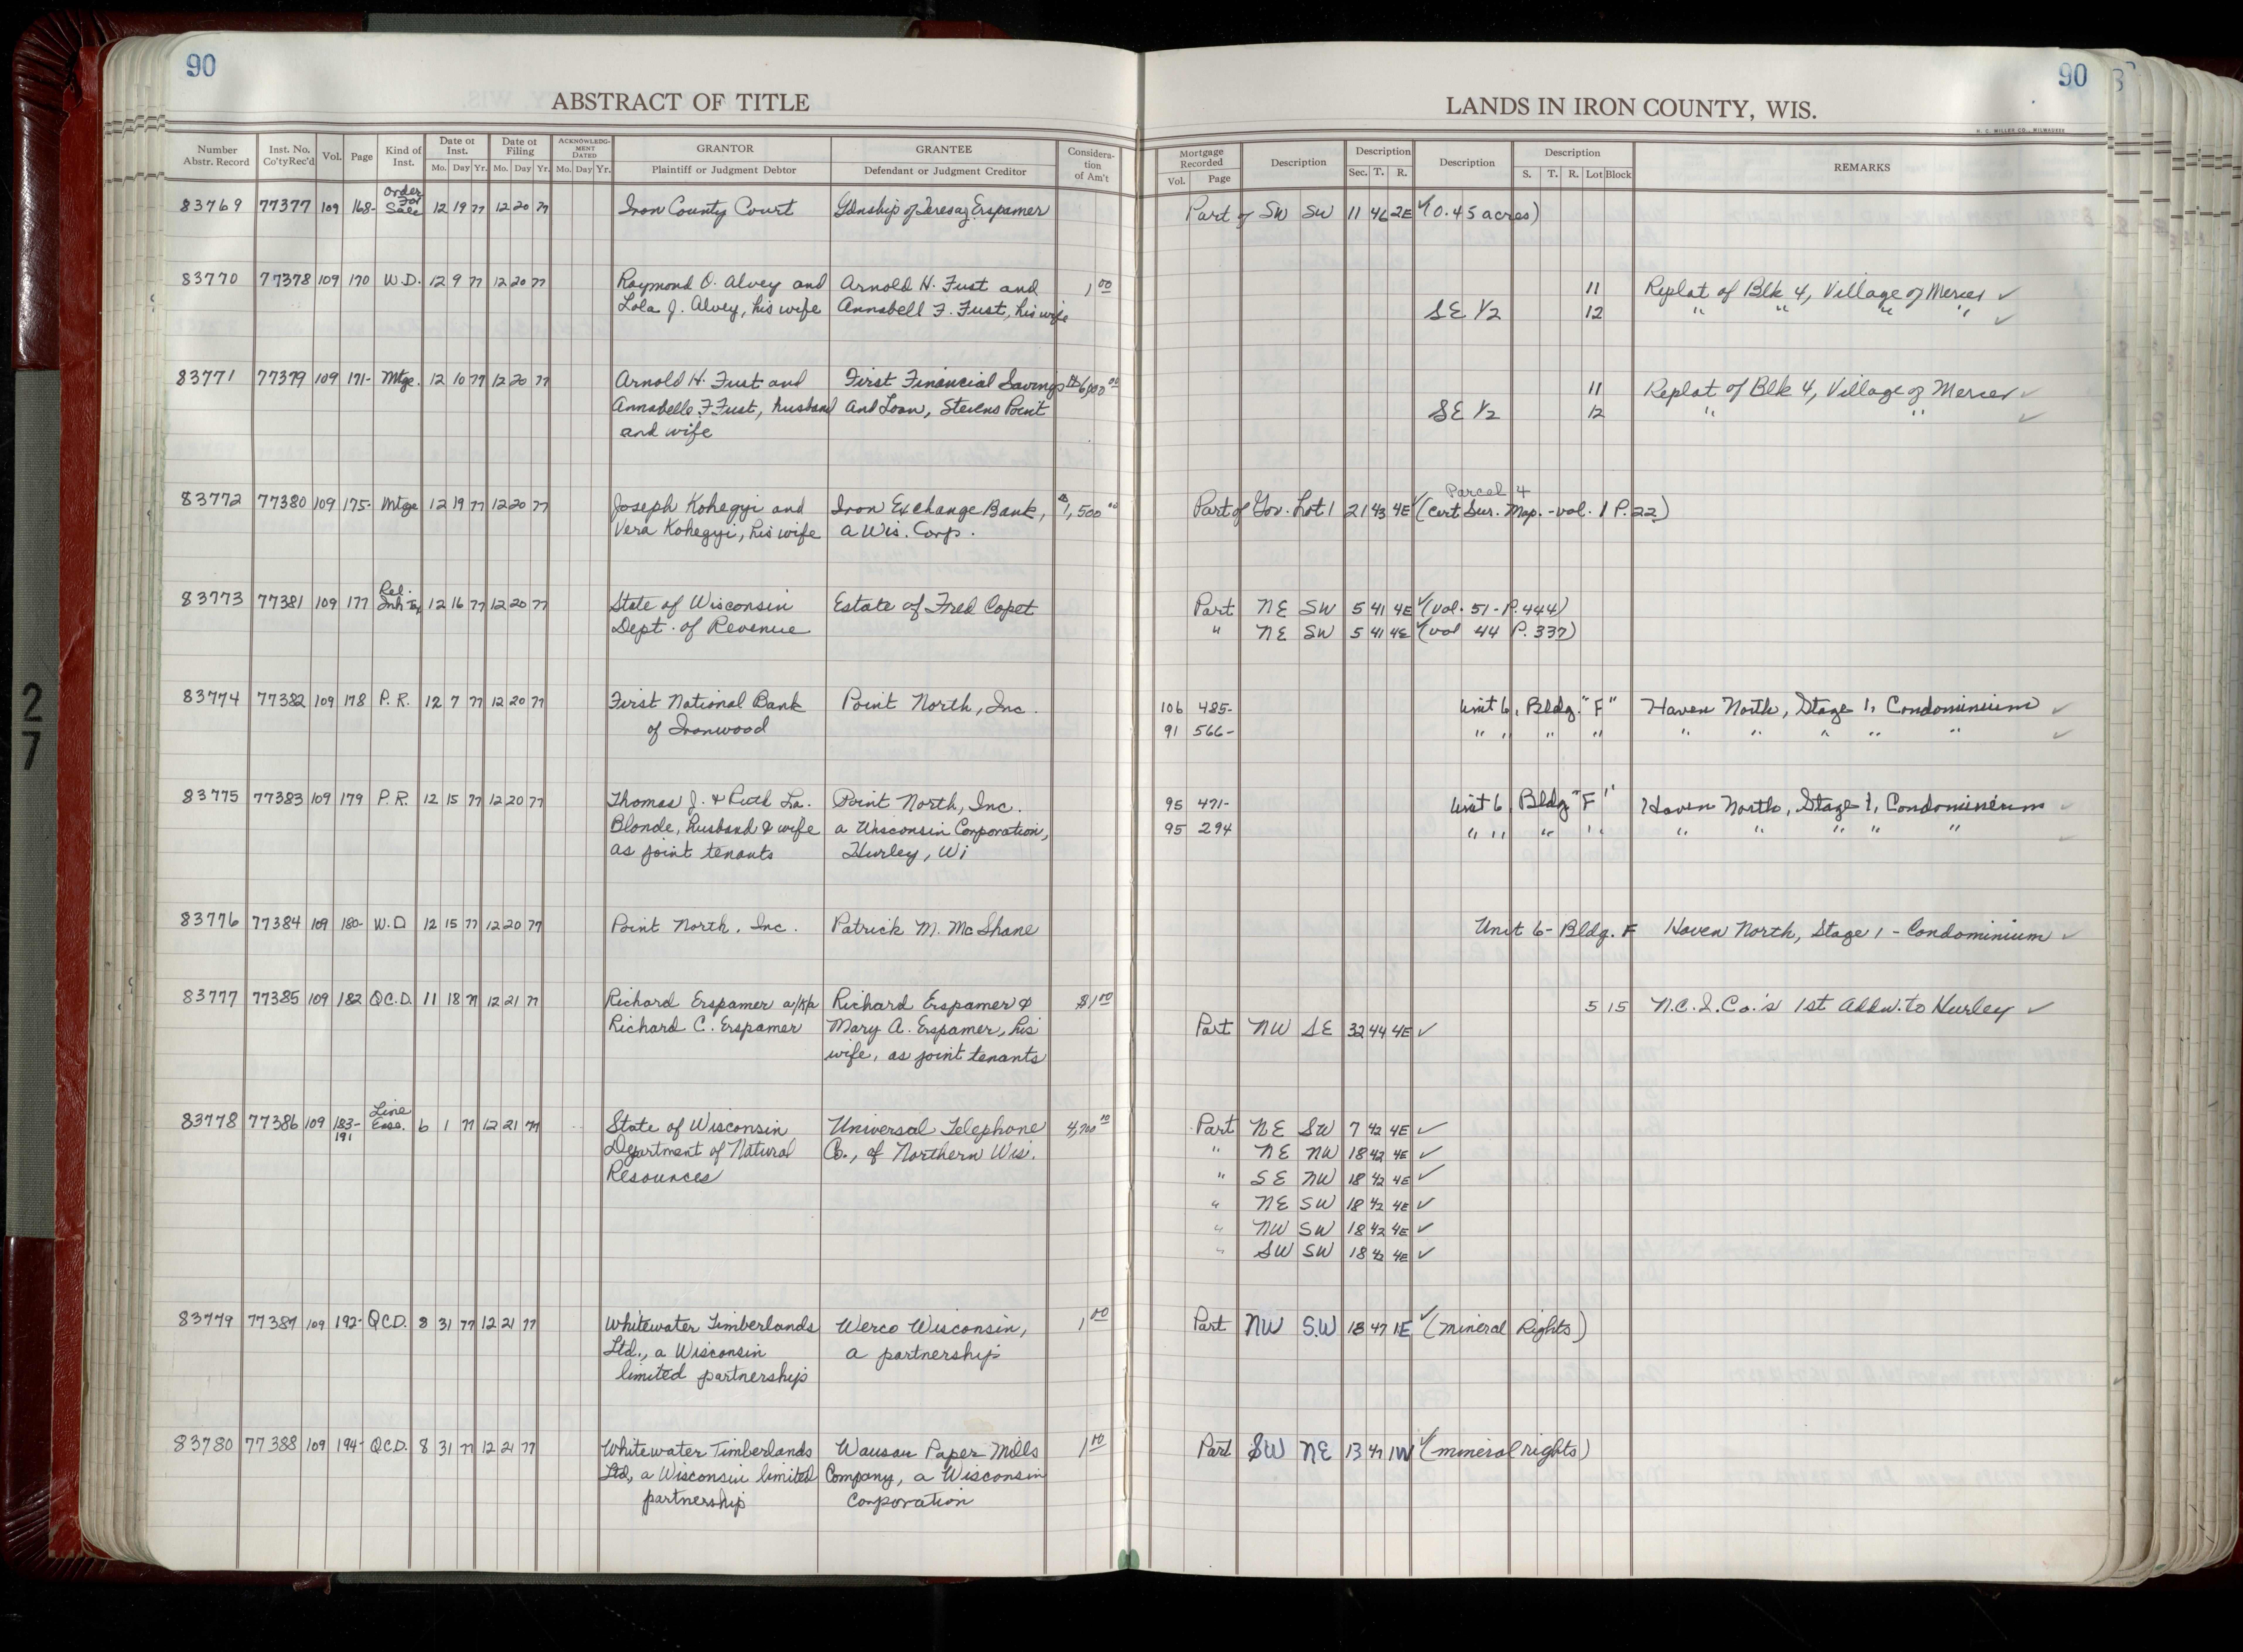 90
90
ABSTRACT OF TITLE
LANDS IN IRON COUNTY, WIS.
H. C. MILLER CO., MILWAUKEE
Number Abstr. Record Inst. No. Co'tyRec'd Vol. Page Kind of Inst. Date of Inst. Mo. Day Yr. Date of Filing Mo. Day Yr. ACKNOWLEDGMENT DATED Mo. Day Yr. GRANTOR Plaintiff or Judgment Debtor GRANTEE Defendant or Judgment Creditor Consideration of Am't Mortgage Recorded Vol. Page Description Description Sec. T. R. Description Description S. T. R. Lot Block REMARKS
Order For
83769 77377 109 168- Sale 12 19 77 12 20 77 Iron County Court Gdnship of Teresa Erspamer Part of SW SW 11 46 2E ✓(0.45 acres)
83770 77378 109 170 W.D. 12 9 77 12 20 77 Raymond O. Alvey and Arnold H. Fust and 1 00 11 Replat of Blk 4, Village of Mercer ✓
Lola J. Alvey, his wife Annabell F. Fust, his wife SE 1/2 12 " " " " ✓
83771 77379 109 171- Mtge. 12 10 77 12 20 77 Arnold H. Fust and First Financial Savings 6,000 00 11 Replat of Blk 4, Village of Mercer ✓
Annabelle F Fust, husband and Loan, Stevens Point SE 1/2 12 " " ✓
and wife
Parcel 4
83772 77380 109 175- Mtge 12 19 77 12 20 77 Joseph Kohegyi and Iron Exchange Bank, $1,500 00 Part of Gov. Lot 1 21 43 4E ✓(Cert Sur. Map. - vol. 1 P. 22)
Vera Kohegyi, his wife a Wis. Corp.
Rel.
83773 77381 109 177 Inh Tax 12 16 77 12 20 77 State of Wisconsin Estate of Fred Copet Part NE SW 5 41 4E ✓(vol. 51 - P. 444)
Dept. of Revenue " NE SW 5 41 4E ✓(vol 44 P. 337)
83774 77382 109 178 P.R. 12 7 77 12 20 77 First National Bank Point North, Inc. 106 485- Unit 6, Bldg. "F" Haven North, Stage 1, Condominium ✓
of Ironwood 91 566- " " " " " " " " " ✓
83775 77383 109 179 P.R. 12 15 77 12 20 77 Thomas J. & Ruth La. Point North, Inc. 95 471- Unit 6, Bldg "F" Haven North, Stage 1, Condominium ✓
Blonde, husband & wife a Wisconsin Corporation, 95 294 " " " " " " " " " ✓
as joint tenants Hurley, Wi
83776 77384 109 180- W.D 12 15 77 12 20 77 Point North, Inc. Patrick M. McShane Unit 6 - Bldg. F Haven North, Stage 1 - Condominium ✓
83777 77385 109 182 Q.C.D. 11 18 77 12 21 77 Richard Erspamer a/k/a Richard Erspamer & $1 00 5 15 N.C.I.Co.'s 1st Addn. to Hurley ✓
Richard C. Erspamer Mary A. Erspamer, his Part NW SE 32 44 4E ✓
wife, as joint tenants
Line
83778 77386 109 183- Ease. 6 1 77 12 21 77 State of Wisconsin Universal Telephone 4,700 00 Part NE SW 7 42 4E ✓
191 Department of Natural Co., of Northern Wis. " NE NW 18 42 4E ✓
Resources " SE NW 18 42 4E ✓
" NE SW 18 42 4E ✓
" NW SW 18 42 4E ✓
" SW SW 18 42 4E ✓
83779 77387 109 192- QCD. 8 31 77 12 21 77 Whitewater Timberlands Werco Wisconsin, 1 00 Part NW S.W 18 47 1E ✓(mineral Rights)
Ltd., a Wisconsin a partnership
limited partnership
83780 77388 109 194- Q.C.D. 8 31 77 12 21 77 Whitewater Timberlands Wausau Paper Mills 1 00 Part SW NE 13 47 1W ✓(mineral rights)
Ltd, a Wisconsin limited Company, a Wisconsin
partnership Corporation
27